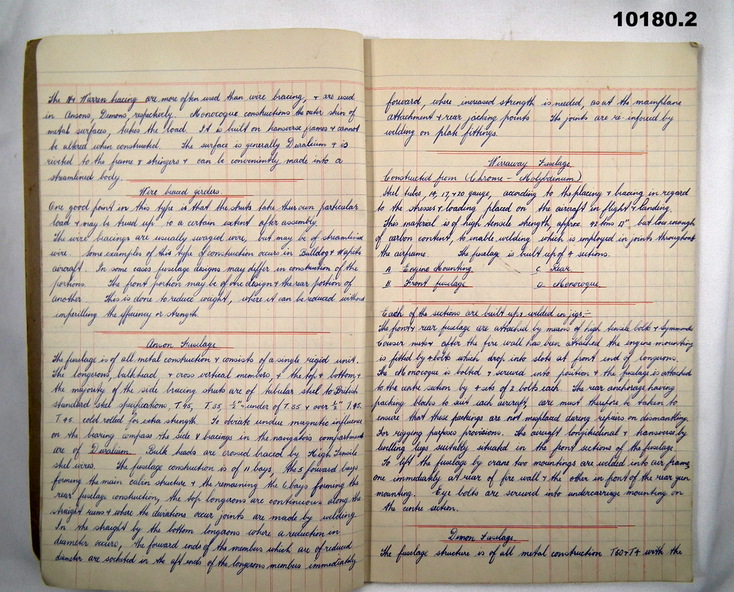 10180.2
The N + Warren bracing are more often used than wire bracing, + are used
in Ansons, Demons, repecterly. Monocoque constructions the outer skin of
metal surfaces, takes the load. It is built on transverse frames + cannot
be altered when constructed. The surface is generally Duralium + is
riveted to the frame + stringers + can be conveniently made into a
streamlined body.
Wire braced girders.
One good point in this type is that the struts take their own particular
load + may be trued up to a certain extent after assembly.
The wire bracings are usually swaged wire, but may be of streamline
wire. Some examples of this type of construction occurs in Bulldog +
aircraft. In some cases fuselage designs may differ in construction of the
portions. The front portion may be of the design + the rear portion of
another. This is done to reduce weight, where it can be reduced without
imperilling the effiency or strength.
Anson Fuselage
The fuselage is of all metal construction + consists of a single rigid unit.
The longerons, bulkhead, + cross vertical members, + the top + bottom, +
the majority of the side bracing struts are of tubular steel to British
standard steel spesification, T.45, T.35, ½" + under of T.35 + over ½" T.45.
T.45 cold rolled for extra strength. To obviate undue magnetic influence
on the bearing compass the side N bracings in the navigators compartment
are of Duralium. Bulk heads are crossed braced by High Tensile
steel wires. The fuselage construction is of 11 bays, the 5 forward bays
forming the main cabin structure + the remaining the 6 bays forming the
rear fuselage construction, the top longerons are continuous along the
straight runs + where the durations occur joints are made by welding.
In the straight by the bottom longerons where a reduction in
diameter occurs, the foward ends of the members which are of reduced
diameter are socketed in the aft ends of the longerons members immediately
forward, where increased strength is needed, as at the mainplane
attachment + rear jacking points. The joints are re-inforced by
welding on plate fittings.
Wirraway Fuselage
Constructed from (Chrome - Molybdinum)
steel tubes, 19, 17, + 20 gauge, acording to the placing + bracing in regard
to the stresses + loading placed on the aircraft in flight + landing.
This material is of high tensile strength, approx 42 tons □", but low enough
of carbon content, to enable welding which is employed in joints throughout
the airframe. The fuselage is built up of 4 sections.
A Engine Mounting. C Rear
B Front fuselage D Monocoque
Each of the sections are built up + welded in jigs:-
The front + rear fuselage are attached by means of high tensile bolts +
nuts + after the fire wall has been attached the engine mounting
is fitted by 4 bolts which drop into slots at front end of longerons.
The Monocoque is bolted + screwed into position + the fuselage is attached
to the centre section by 4 sets of 2 bolts each. The rear anchorage having
packing blocks to suit each aircraft, care must therefore be taken to
ensure that these packings are not misplaced during repairs or dismantling.
For rigging purposes provisions. The aircraft longitudinal + transverse by
bolting lugs suitably situated in the front sections of the fuselage.
To lift the fuselage by crane two mountings are welded into air frame,
one immediatly at rear of fire wall + the other in front of the rear gun
mounting. Eye bolts are screwed into undercarriage mounting on
the centre section.
Demon Fuselage
The fuselage structure is of all metal construction T50 + T4 with the